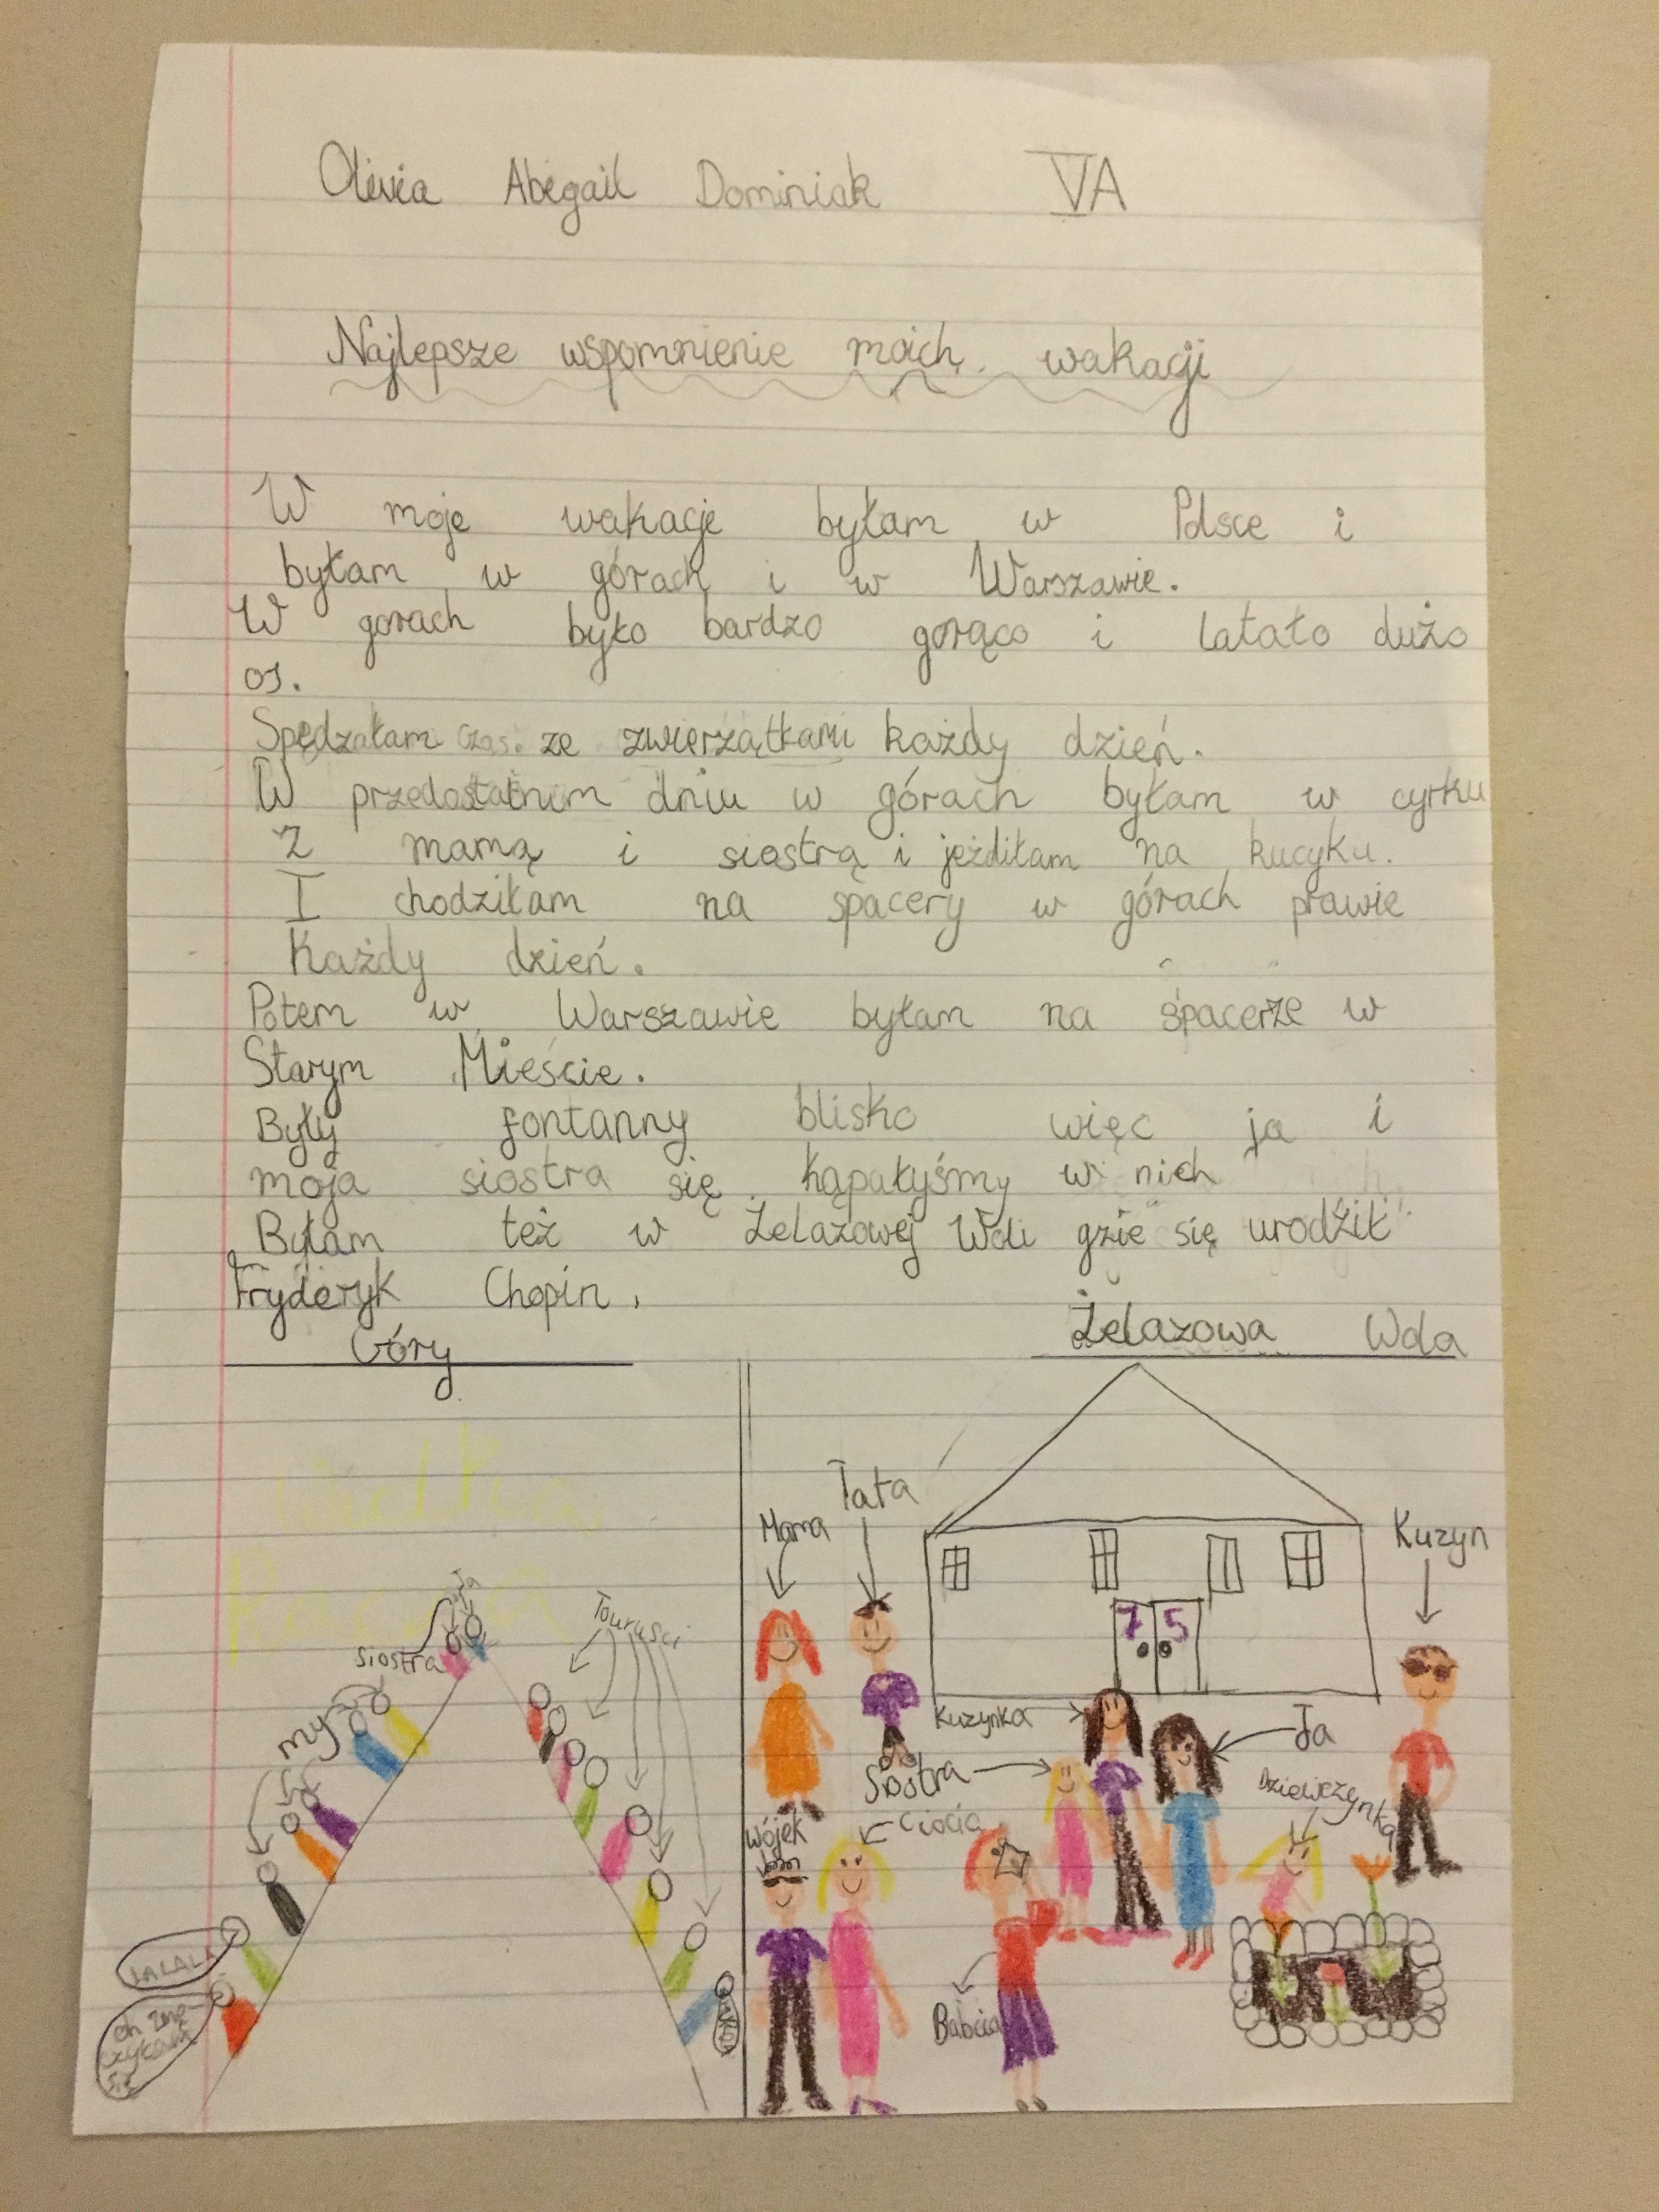 Olivia Abegail Dominiak VA
Najlepsze wspomnienie moich wakacji
W moje wakacje byłam w Polsce i
byłam w górach i w Warszawie.
W gorach było bardzo gorąco i latało dużo
os.
Spędzałam czas. ze zwierzątkami każdy dzień.
W przedostatnim dniu w górach byłam w cyrku
z mamą i siostrą i jeździłam na kucyku.
I chodziłam na spacery w górach prawie
Każdy dzień.
Potem w Warszawie byłam na spacerze w
Starym Mieście.
Były fontanny blisko więc ja i
moja siostra się kąpałyśmy w nich
Byłam też w Żelazowej Woli gzie się urodził
Fryderyk Chopin.
Góry
Żelazowa Wola
Wielka
Racza
Ja
siostra
Touryści
my
LALALA
Mama
Tata
Kuzyn
7 5
Kuzynka
Ja
Siostra
Dziewczynka
wójek
Ciocia
Babcia